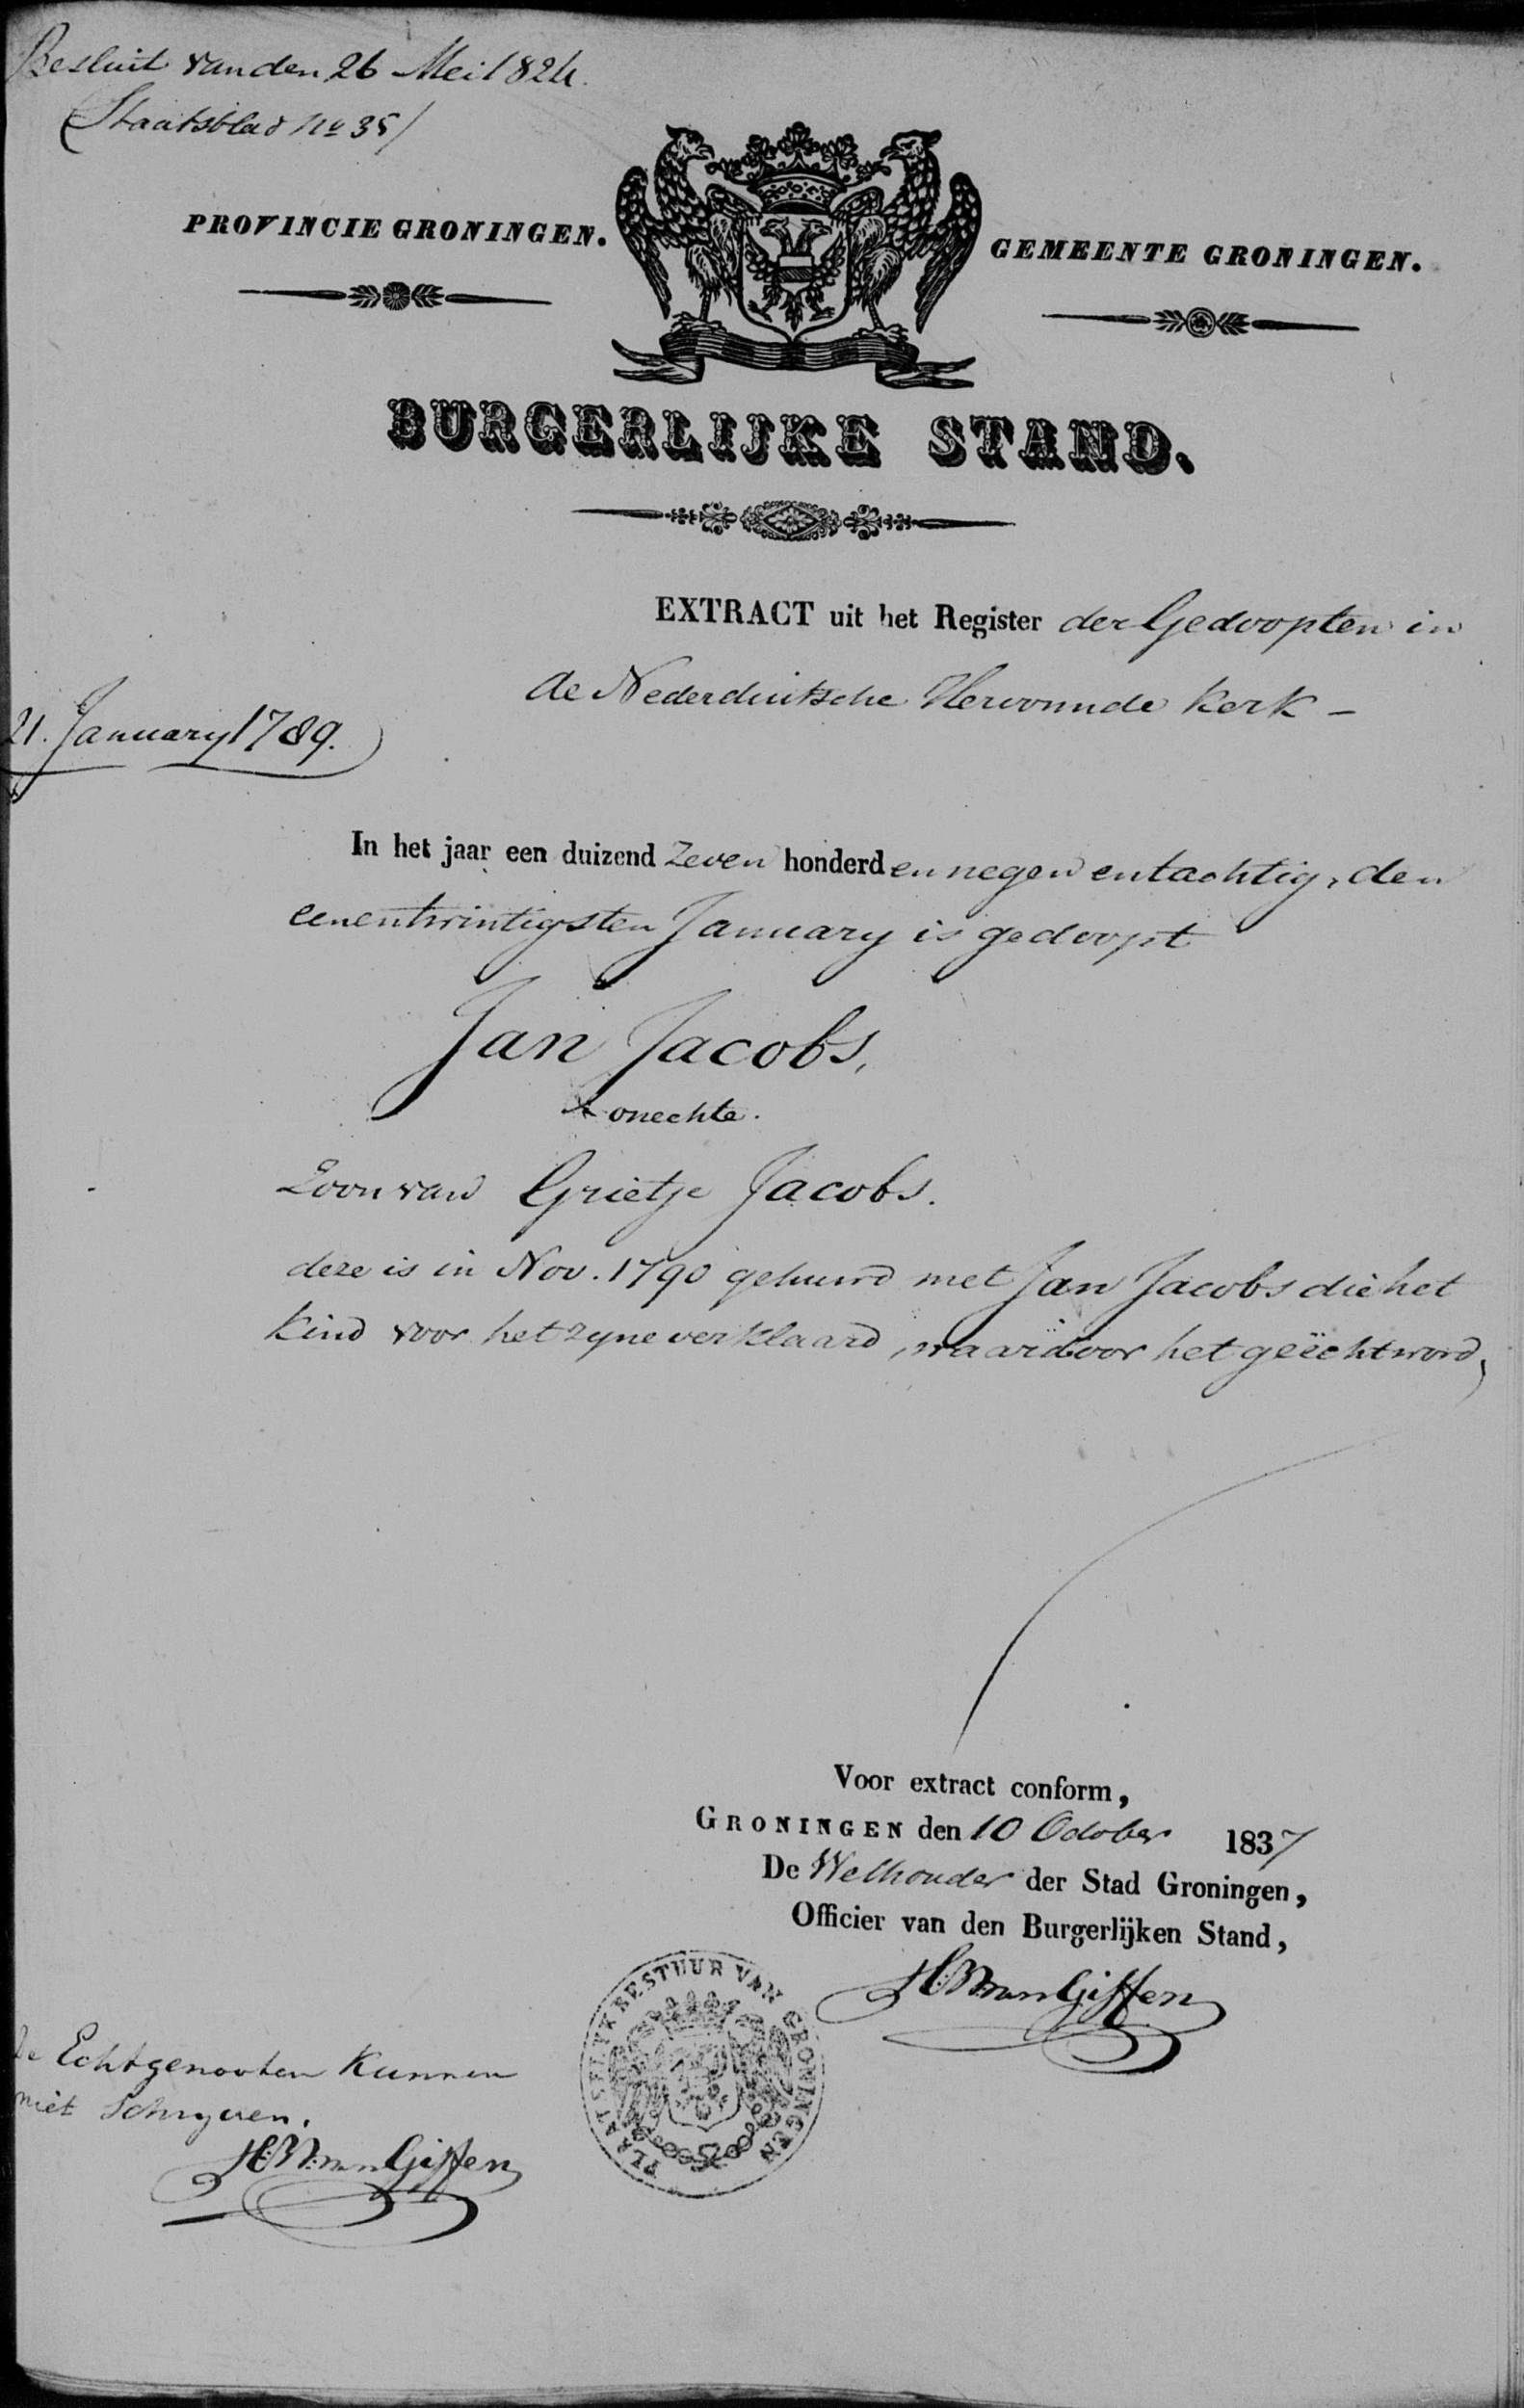 Besluit van den 26 Mei 1824.
(Staatsblad No 35)
PROVINCIE GRONINGEN.
GEMEENTE GRONINGEN.
BURGERLIJKE STAND.
EXTRACT uit het Register der Gedoopten in
de Nederduitsche Hervormde Kerk –
21. January 1789.
In het jaar een duizend Zeven honderd en negen en tachtig, den
eenentwintigsten January is gedoopt
Jan Jacobs,
onechte.
Zoon van Grietje Jacobs.
deze is in Nov. 1790 gehuwd met Jan Jacobs die het
Kind voor het zyne verklaard, waardoor het geëcht word,
Voor extract conform,
GRONINGEN den 10 October 1837
De Wethouder der Stad Groningen,
Officier van den Burgerlijken Stand,
H. W. van Giffen
PLAATSELYK BESTUUR VAN GRONINGEN
De Echtgenooten Kunnen
niet Schryven.
H. W. van Giffen